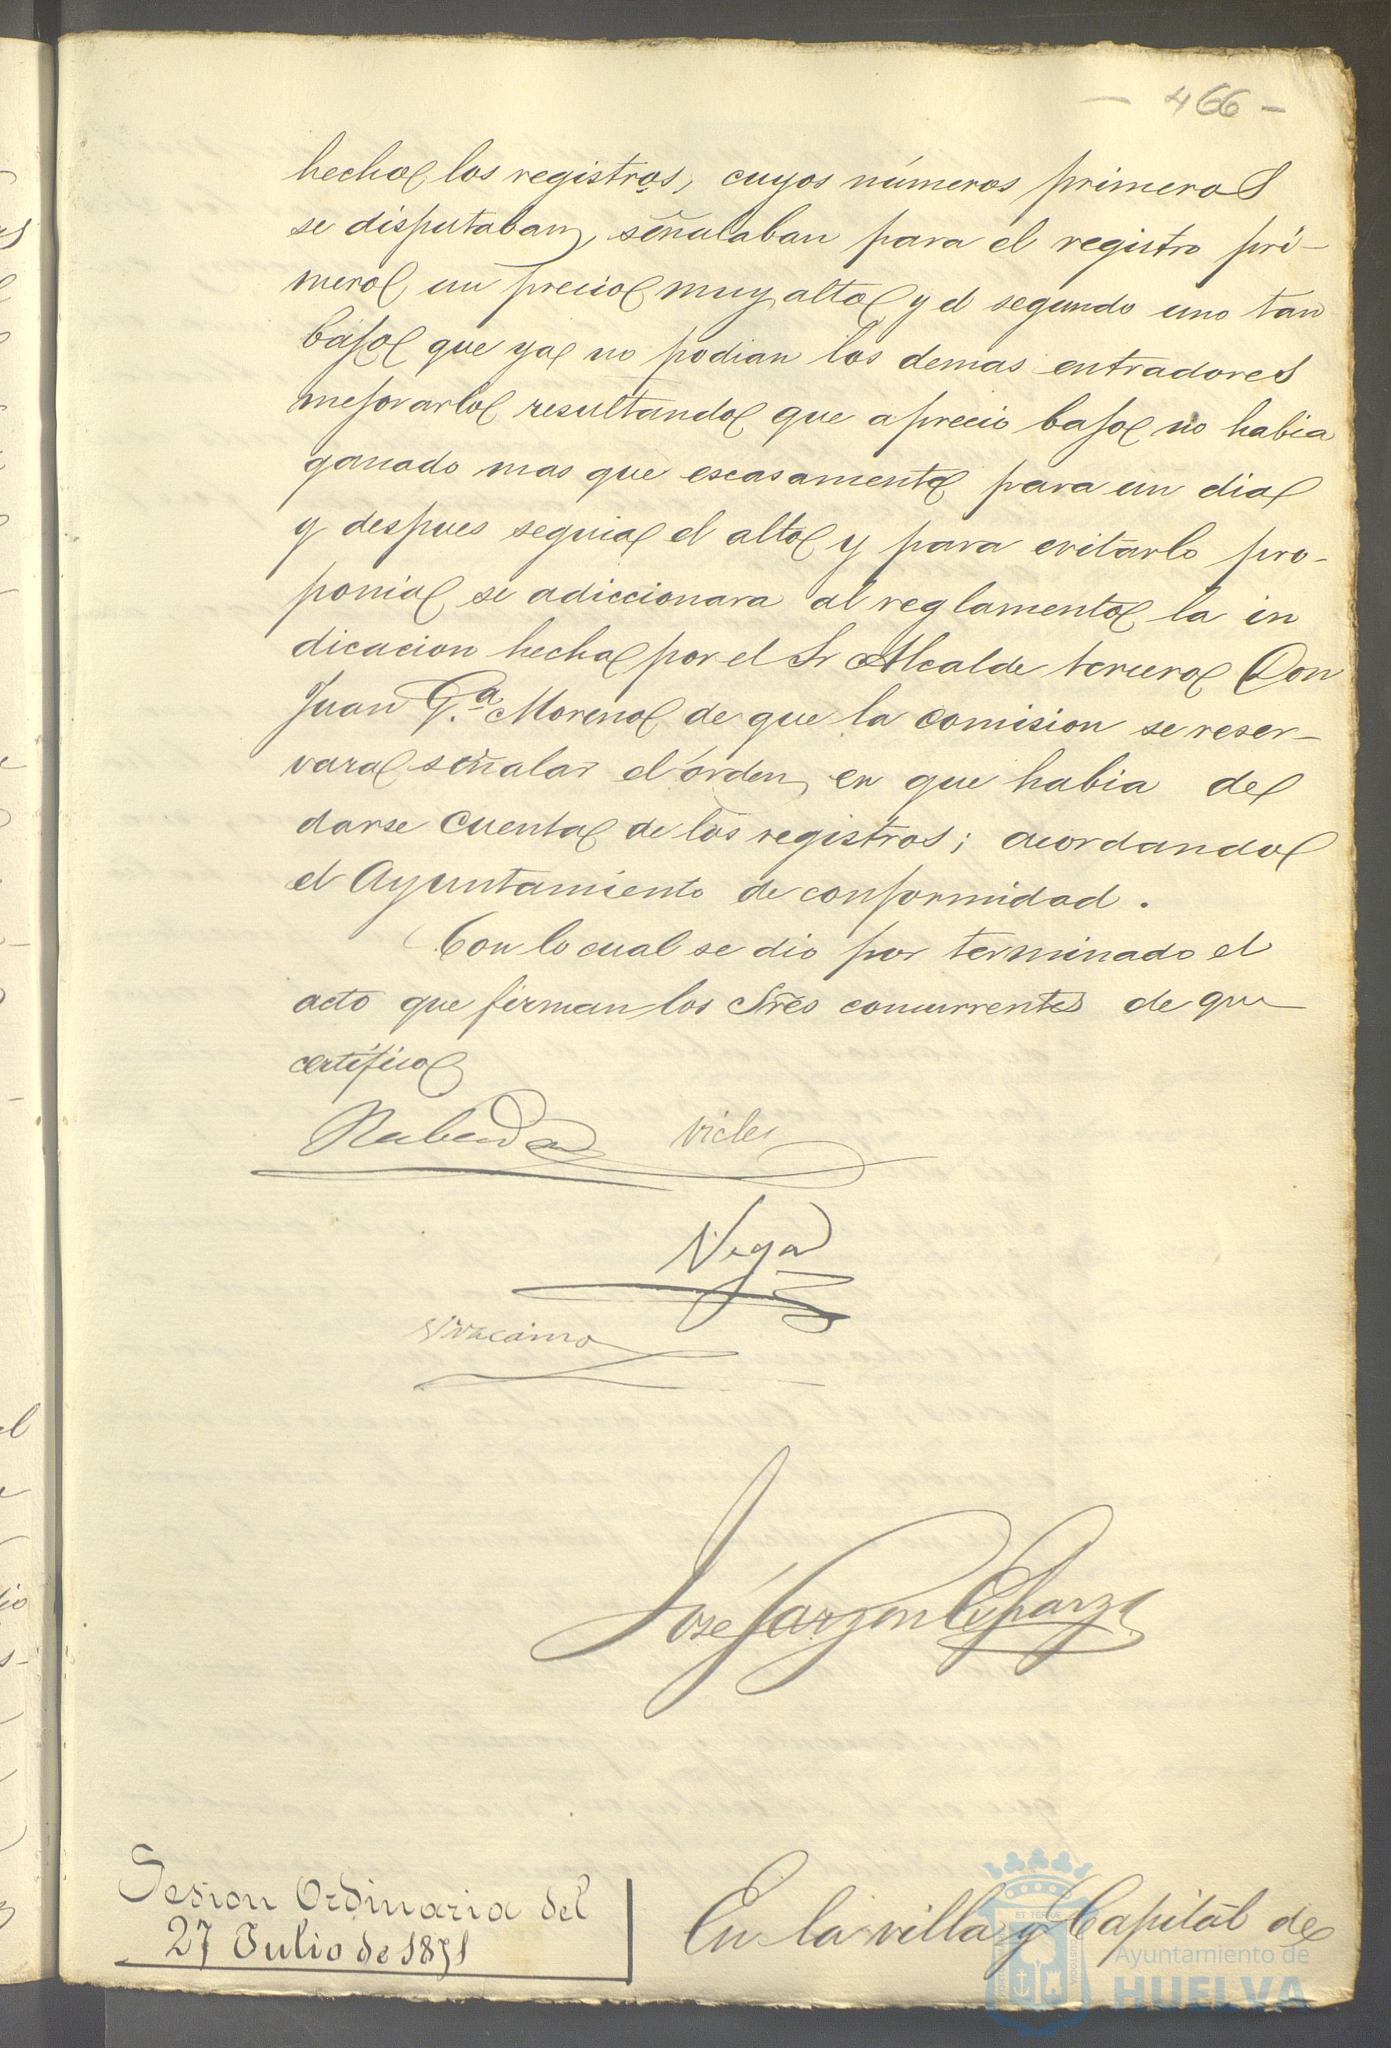 - 466 -
hecho los registros, cuyos números primeros
se disputaban, señalaban para el registro pri-
mero un precio muy alto y el segundo uno tan
bajo que ya no podian los demas entradores
mejorarlo resultando que a precio bajo no habia
ganado mas que escasamente para un dia
y despues seguia el alto y para evitarlo pro-
ponia se adiccionara al reglamento la in
dicacion hecha por el Sr Alcalde tercero Don
Juan G.ª Moreno de que la comision se reser-
vara señalar el órden en que habia de
darse cuenta de los registros; acordando
el Ayuntamiento de conformidad.
Con lo cual se dio por terminado el
acto que firman los Sres concurrentes de que
certifico
Vega
José Garzon Esparza
Sesion Ordinaria del
27 Julio de 1871
En la villa y Capital de
Ayuntamiento de
HUELVA